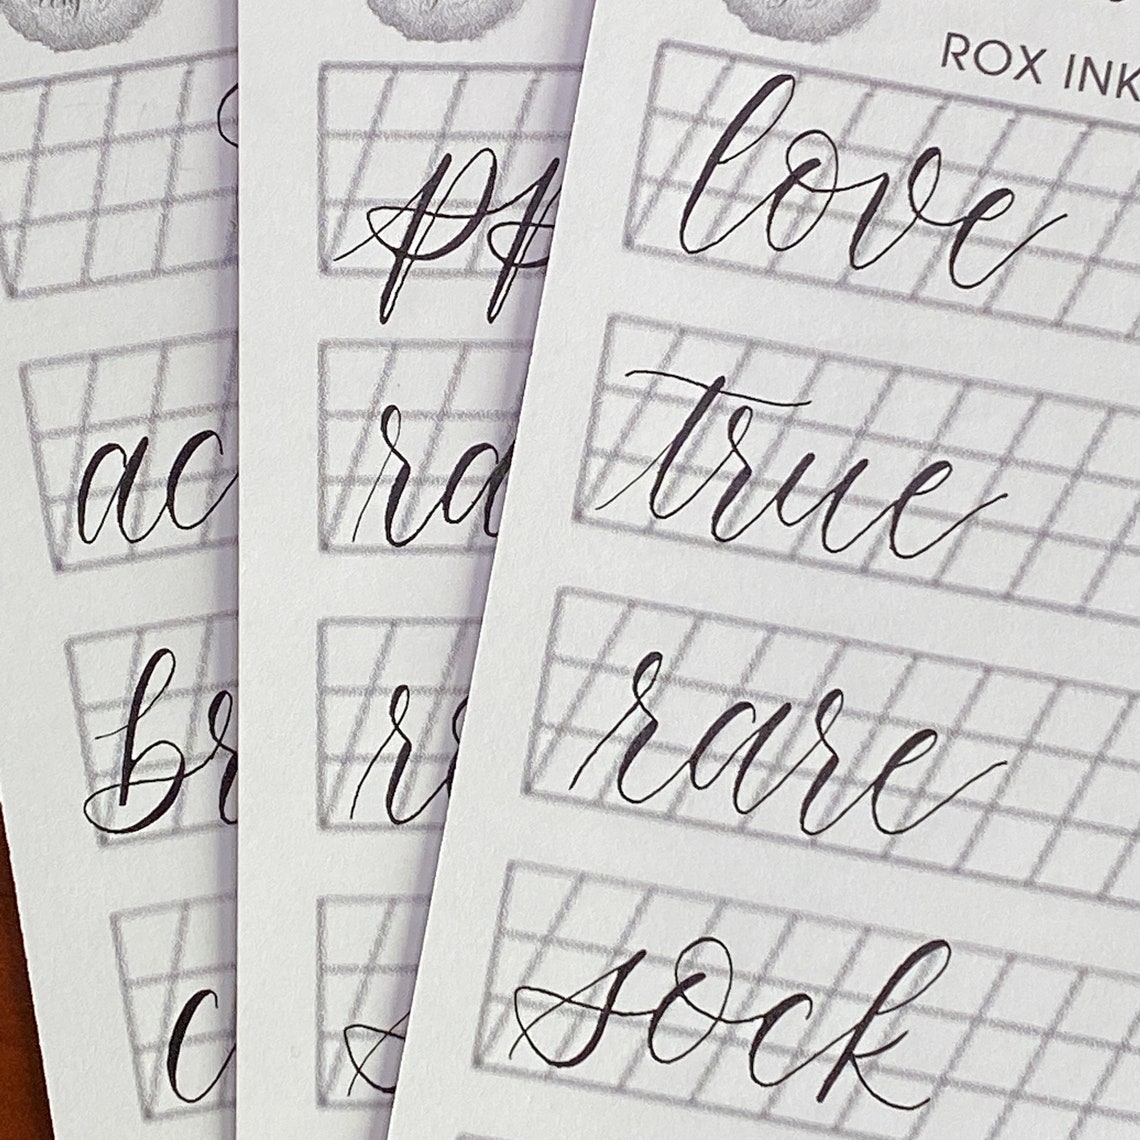 ROX INK
love
true
rare
sock
pp
ra
r
s
ac
br
c